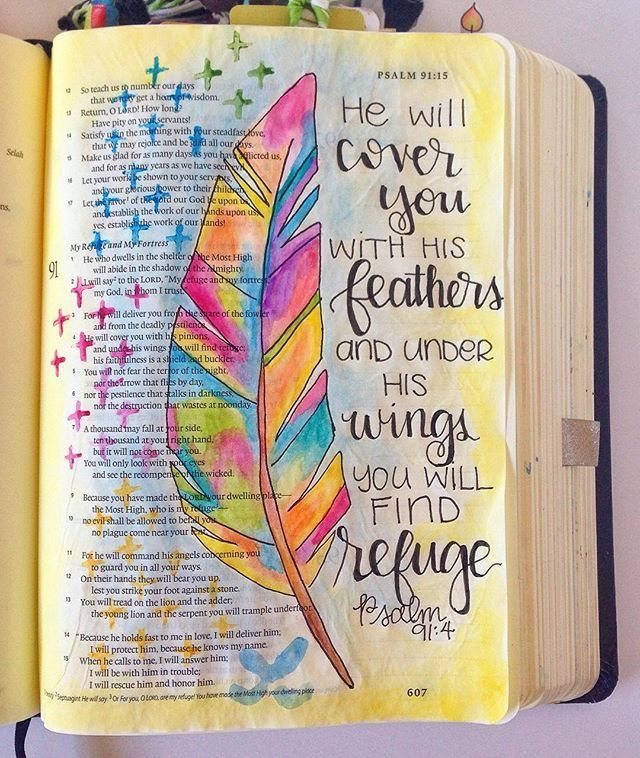 Selah
PSALM 91:15
12 So teach us to number our days
that we may get a heart of wisdom.
13 Return, O LORD! How long?
Have pity on your servants!
14 Satisfy us in the morning with your steadfast love,
that we may rejoice and be glad all our days.
15 Make us glad for as many days as you have afflicted us,
and for as many years as we have seen evil.
16 Let your work be shown to your servants,
and your glorious power to their children.
17 Let the favor of the Lord our God be upon us,
and establish the work of our hands upon us;
yes, establish the work of our hands!
My Refuge and My Fortress
91
1 He who dwells in the shelter of the Most High
will abide in the shadow of the Almighty.
2 I will say² to the LORD, "My refuge and my fortress,
my God, in whom I trust."
3 For he will deliver you from the snare of the fowler
and from the deadly pestilence.
4 He will cover you with his pinions,
and under his wings you will find refuge;
his faithfulness is a shield and buckler.
5 You will not fear the terror of the night,
nor the arrow that flies by day,
6 nor the pestilence that stalks in darkness,
nor the destruction that wastes at noonday.
7 A thousand may fall at your side,
ten thousand at your right hand,
but it will not come near you.
8 You will only look with your eyes
and see the recompense of the wicked.
9 Because you have made the LORD your dwelling place—
the Most High, who is my refuge³—
10 no evil shall be allowed to befall you,
no plague come near your tent.
11 For he will command his angels concerning you
to guard you in all your ways.
12 On their hands they will bear you up,
lest you strike your foot against a stone.
13 You will tread on the lion and the adder;
the young lion and the serpent you will trample underfoot.
14 "Because he holds fast to me in love, I will deliver him;
I will protect him, because he knows my name.
15 When he calls to me, I will answer him;
I will be with him in trouble;
I will rescue him and honor him.
² Septuagint He will say ³ Or For you, O LORD, are my refuge! You have made the Most High your dwelling place
He will
cover
you
WITH HIS
feathers
AND UNDER
HIS
wings
YOU WILL
FIND
refuge
Psalm
91:4
607